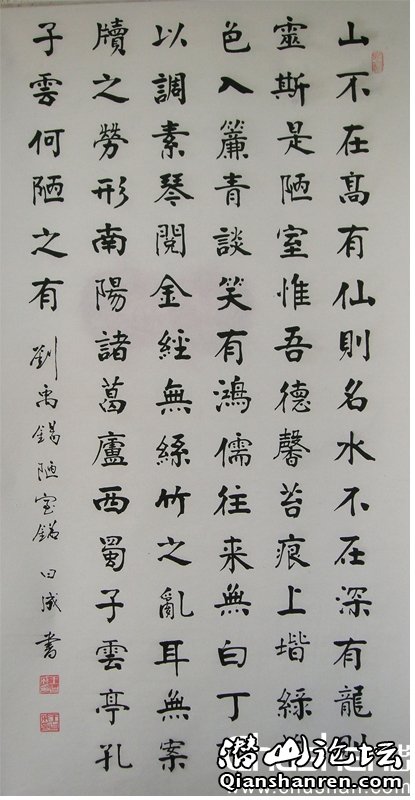 山不在髙有仙則名水不在深有龍則
靈斯是陋室惟吾德馨苔痕上堦綠
色入簾青談笑有鴻儒往来無白丁
以調素琴閱金經無絲竹之亂耳無案
牘之勞形南陽諸葛廬西蜀子雲亭孔
子雲何陋之有
劉禹錫陋室銘 書
潜山论坛
Qianshanren.com